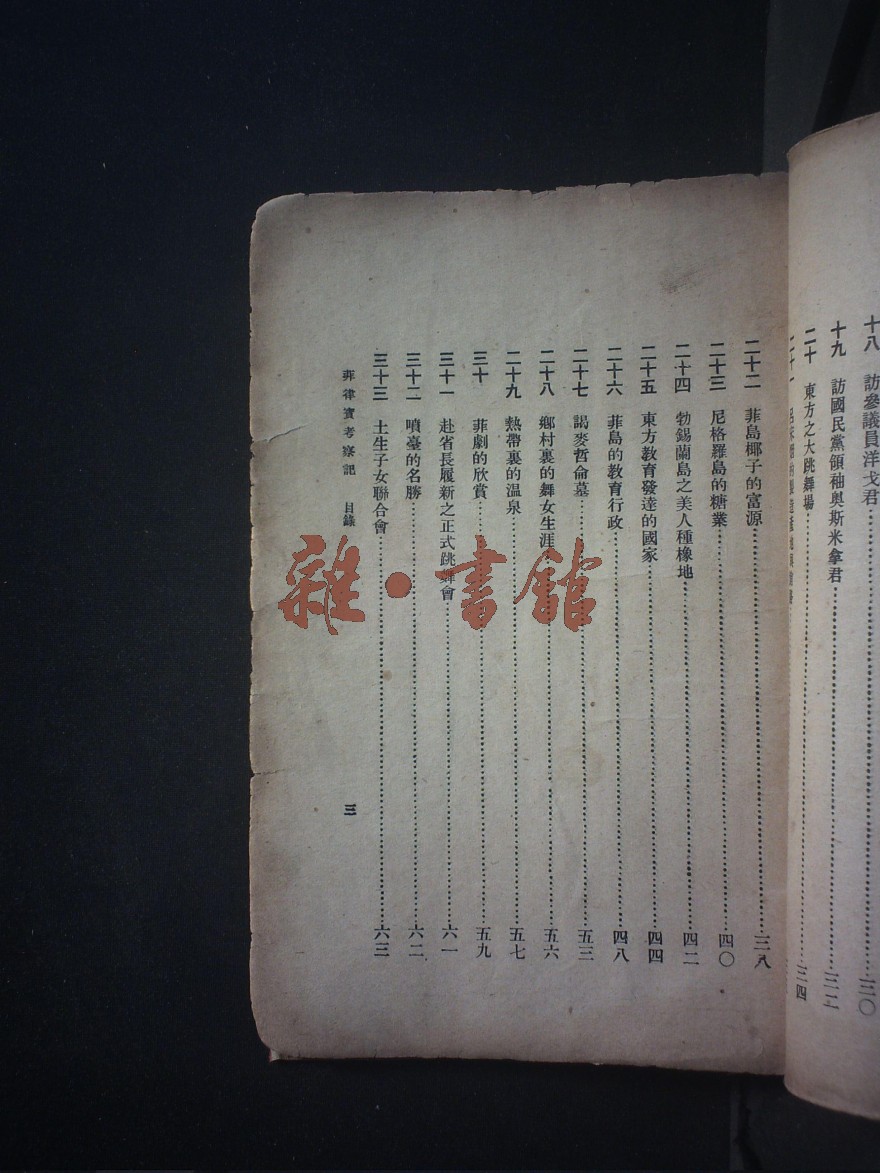 十八 訪參議員洋戈君……三〇
十九 訪國民黨領袖奧斯米拿君……三二
二十 東方之大跳舞場……三四
二十一
二十二 菲島椰子的富源……三八
二十三 尼格羅島的糖業……四〇
二十四 勃錫蘭島之美人種橡地……四二
二十五 東方教育發達的國家……四四
二十六 菲島的教育行政……四八
二十七 謁麥哲倫墓……五三
二十八 鄉村裏的舞女生涯……五六
二十九 熱帶裏的温泉……五七
三十 菲劇的欣賞……五九
三十一 赴省長履新之正式跳舞會……六一
三十二 噴臺的名勝……六二
三十三 土生子女聯合會……六三
菲律賓考察記 目錄 三
雜·書館